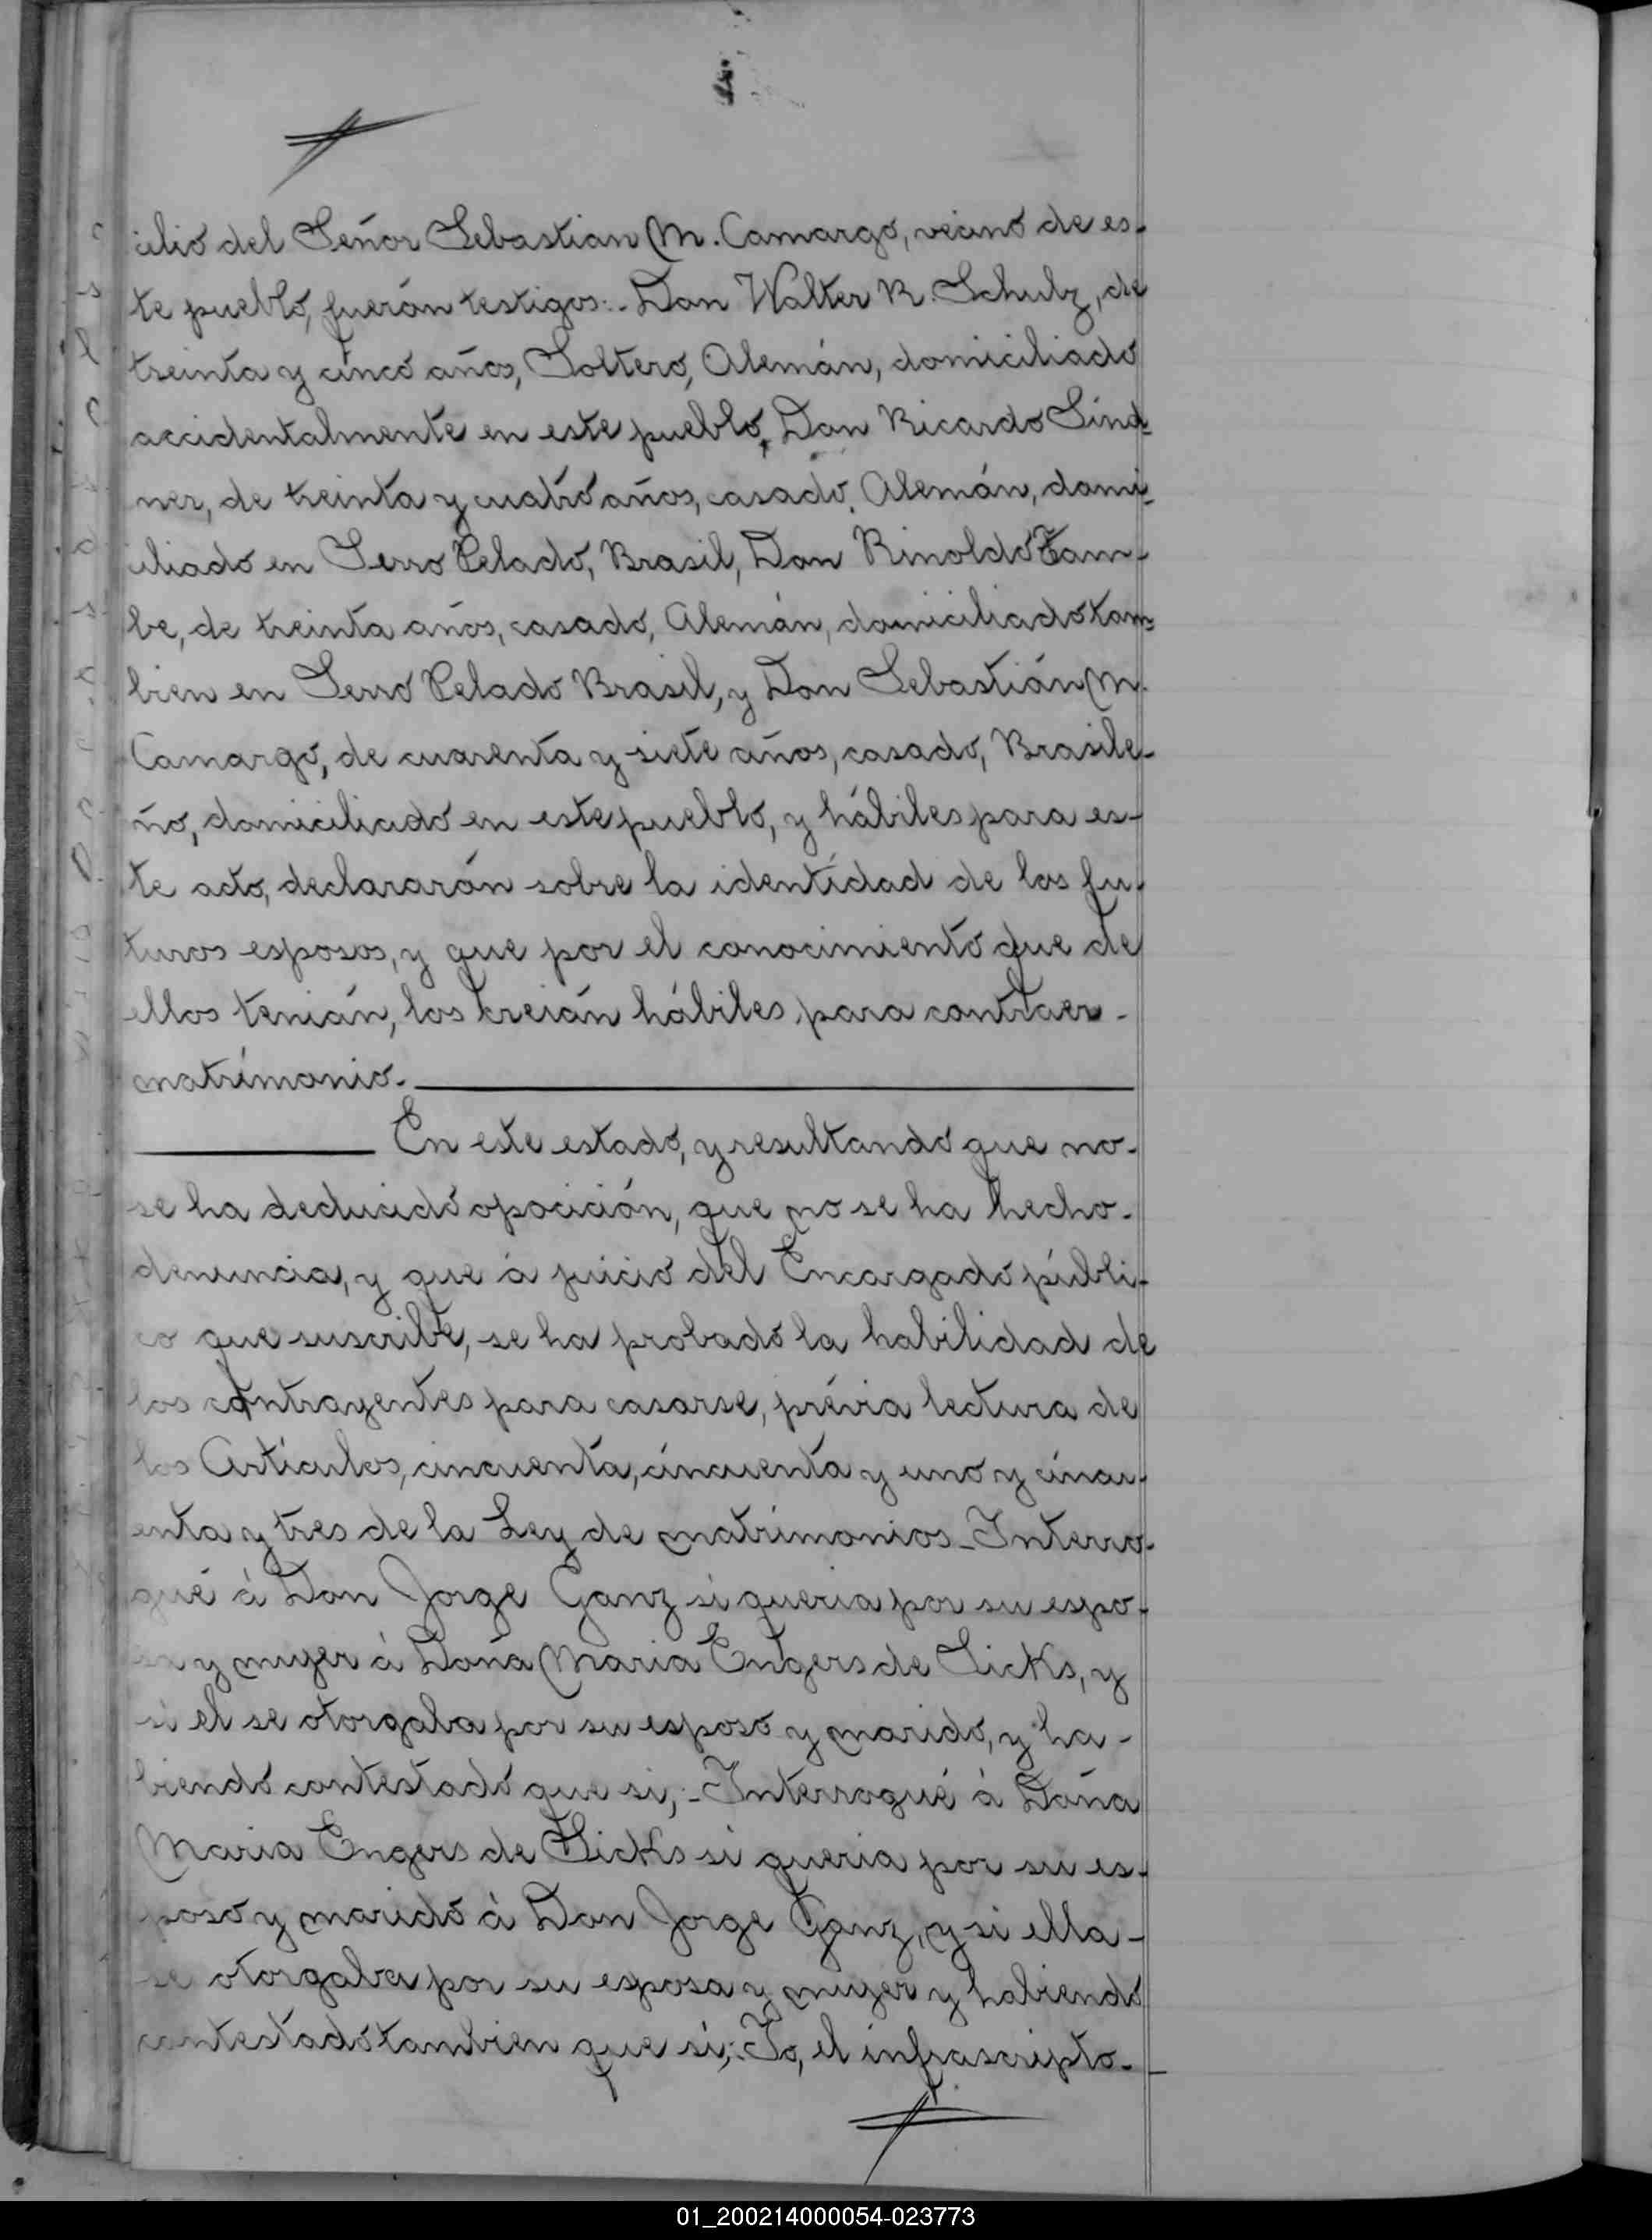 cilio del Señor Sebastian M. Camargo, vecino de es-
te pueblo, fuerón testigos:- Don Walter R. Schulz, de
treinta y cinco años, Soltero, Alemán, domiciliado
accidentalmente en este pueblo, Don Ricardo Lind-
ner, de treinta y cuatro años, casado, Alemán, domi-
ciliado en Serro Pelado, Brasil, Don Rinoldo Tam-
be, de treinta años, casado, Alemán, domiciliado tam-
bien en Serro Pelado Brasil, y Don Sebastián M.
Camargo, de cuarenta y siete años, casado, Brasile-
ño, domiciliado en este pueblo, y hábiles para es-
te acto, declararón sobre la identidad de los fu-
turos esposos, y que por el conocimiento que de
ellos tenián, los creián hábiles para contraer-
matrimonio.-
En este estado, y resultando que no-
se ha deducido oposición, que no se ha hecho-
denuncia, y que á juicio del Encargado públi-
co que suscribe, se ha probado la habilidad de
los contrayentes para casarse, prévia lectura de
los Artículos, cincuenta, cincuenta y uno y cincu-
enta y tres de la Ley de matrimonios- Interro-
gué á Don Jorge Ganz si queria por su espo-
sa y mujer á Doña Maria Engers de Licks, y
si el se otorgaba por su esposo y marido, y ha-
biendo contestado que si;- Interrogué á Doña
Maria Engers de Licks si queria por su es-
poso y marido á Don Jorge Ganz, y si ella-
se otorgaba por su esposa y mujer y habiendo
contestado tambien que si;- Yo, el infrascripto-
01_200214000054-023773